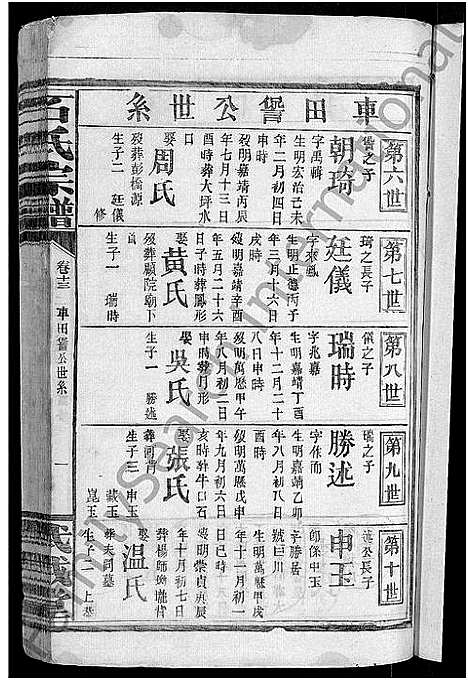 車田訾公世系
第六世
訾之子
朝琦
字禹縉
生明宏治己未
年二月初四日
申時
歿明嘉靖丙辰
年七月十三日
酉時葬大坪水
口
娶
周氏
歿葬彭橋源
生子二 廷儀
修
第七世
琦之長子
廷儀
字來鳳
生明正德丙子
年三月十六日
戌時
歿明嘉靖辛酉
年五月二十六
日子時葬鳳形
娶
黃氏
歿葬顯院廟下
首
生子一 瑞時
第八世
儀之子
瑞時
字兆嘉
生明嘉靖丁酉
年十二月二十
八日申時
歿明萬歷甲午
年八月初二日
申時葬月形
娶
吳氏
生子一 勝述
第九世
瑞之子
勝述
字作而
生明嘉靖乙卯
年八月初八日
酉時
歿明萬歷戊申
年九月初六日
亥時葬牛口石
娶
張氏
葬河背
生子三 申玉
崑玉
第十世
述公長子
申玉
卽保中玉
字勝居
生明萬歷甲戌
年十一月初一
日巳時
歿明崇貞庚辰
年十月初七日
娶
温氏
生子二
石氏宗譜
卷十三
車田訾公世系
一